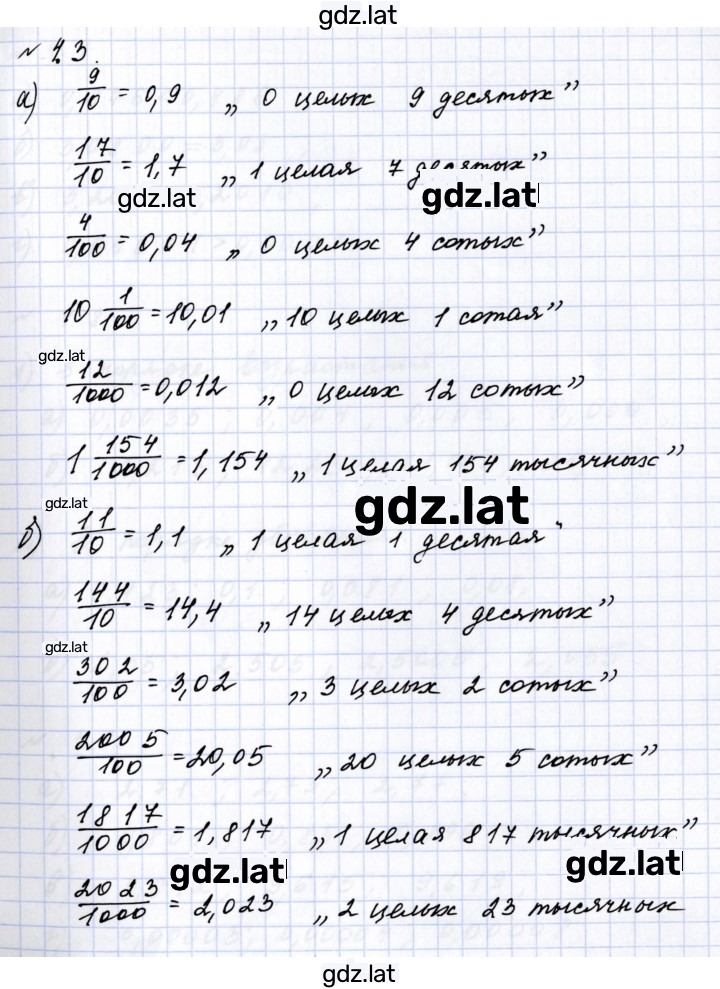 gdz.lat
№ 4.3.
а) 9/10 = 0,9 „0 целых 9 десятых”
17/10 = 1,7 „1 целая 7 десятых”
gdz.lat gdz.lat
4/100 = 0,04 „0 целых 4 сотых”
10 1/100 = 10,01 „10 целых 1 сотая”
gdz.lat
12/1000 = 0,012 „0 целых 12 сотых”
1 154/1000 = 1,154 „1 целая 154 тысячных”
gdz.lat gdz.lat
б) 11/10 = 1,1 „1 целая 1 десятая”
144/10 = 14,4 „14 целых 4 десятых”
gdz.lat
302/100 = 3,02 „3 целых 2 сотых”
2005/100 = 20,05 „20 целых 5 сотых”
1817/1000 = 1,817 „1 целая 817 тысячных”
gdz.lat gdz.lat
2023/1000 = 2,023 „2 целых 23 тысячных
gdz.lat